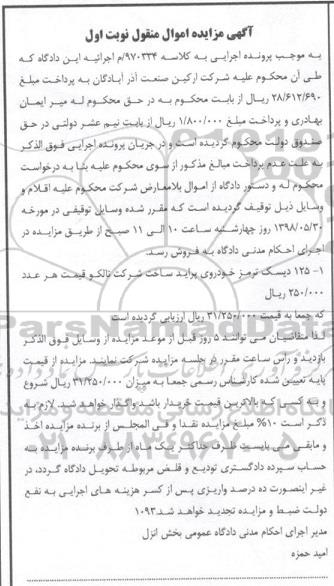 آگهی مزایده اموال منقول نوبت اول
به موجب پرونده اجرایی به کلاسه ۹۷۰۳۳۴/م اجرائیه این دادگاه که
طی آن محکوم علیه شرکت ارکین صنعت آذر آبادگان به پرداخت مبلغ
۲۸/۶۱۲/۶۹۰ ریال از بابت محکوم به در حق محکوم له میر ایمان
بهادری و پرداخت مبلغ ۱/۸۰۰/۰۰۰ ریال از بابت نیم عشر دولتی در حق
صندوق دولت محکوم گردیده است و در جریان پرونده اجرایی فوق الذکر
به علت عدم پرداخت مبالغ مذکور از سوی محکوم علیه بنا به درخواست
محکوم له و دستور دادگاه از اموال بلامعارض شرکت محکوم علیه اقلام و
وسایل ذیل توقیف گردیده است که مقرر شده وسایل توقیفی در مورخه
۱۳۹۸/۰۵/۳۰ روز چهارشنبه ساعت ۱۰ الی ۱۱ صبح از طریق مزایده در
اجرای احکام مدنی دادگاه به فروش رسد.
۱- ۱۲۵ دیسک ترمز خودروی پراید ساخت شرکت نالکو قیمت هر عدد
۲۵۰/۰۰۰ ریال
که جمعا به قیمت ۳۱/۲۵۰/۰۰۰ ریال ارزیابی گردیده است
لذا متقاضیان می توانند ۵ روز قبل از موعد مزایده از وسایل فوق الذکر
بازدید و راس ساعت مقرر در جلسه مزایده شرکت نمایند. مزایده از قیمت
پایه تعیین شده کارشناس رسمی جمعا به میزان ۳۱/۲۵۰/۰۰۰ ریال شروع
و به کسی که بالاترین قیمت خریدار باشد واگذار خواهد شد. لازم به
ذکر است ۱۰% مبلغ مزایده نقدا و فی المجلس از برنده مزایده اخذ
و مابقی می بایست ظرف حداکثر یک ماه از طرف برنده مزایده به
حساب سپرده دادگستری تودیع و قلض مربوطه تحویل دادگاه گردد، در
غیر اینصورت ده درصد واریزی پس از کسر هزینه های اجرایی به نفع
دولت ضبط و مزایده تجدید خواهد شد.۱۰۹۳
مدیر اجرای احکام مدنی دادگاه عمومی بخش انزل
امید حمزه
ParsNamadData
۰۲۱-۸۸۳۴۹۶۷۰-۵